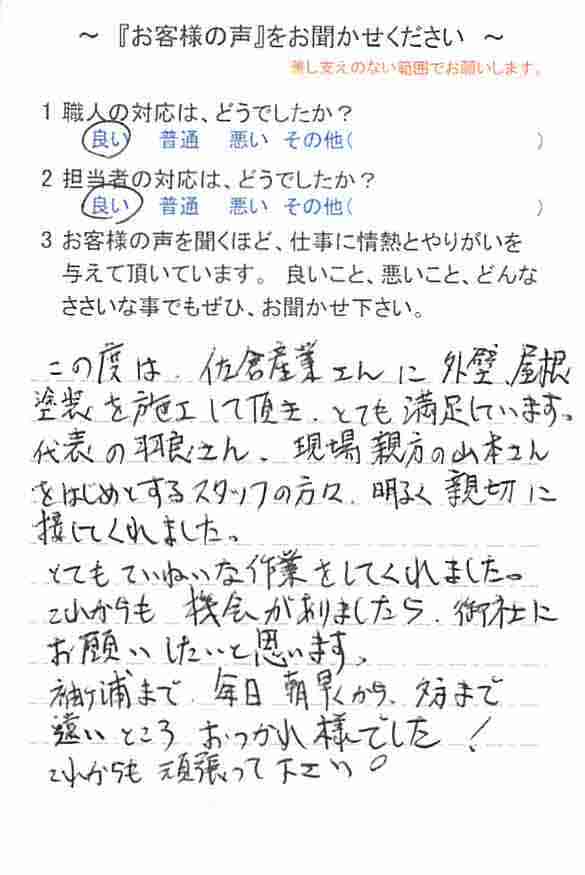 ～ 『お客様の声』をお聞かせください ～
差し支えのない範囲でお願いします。
1 職人の対応は、どうでしたか？
良い 普通 悪い その他( )
2 担当者の対応は、どうでしたか？
良い 普通 悪い その他( )
3 お客様の声を聞くほど、仕事に情熱とやりがいを
与えて頂いています。 良いこと、悪いこと、どんな
ささいな事でもぜひ、お聞かせ下さい。
この度は、佐倉産業さんに外壁、屋根
塗装を施工して頂き、とても満足しています。
代表の羽良さん、現場親方の山本さん
をはじめとするスタッフの方々、明るく親切に
接してくれました。
とてもていねいな作業をしてくれました。
これからも機会がありましたら、御社に
お願いしたいと思います。
袖ヶ浦まで、毎日朝早くから、夕方まで
遠いところおつかれ様でした！
これからも頑張って下さい。